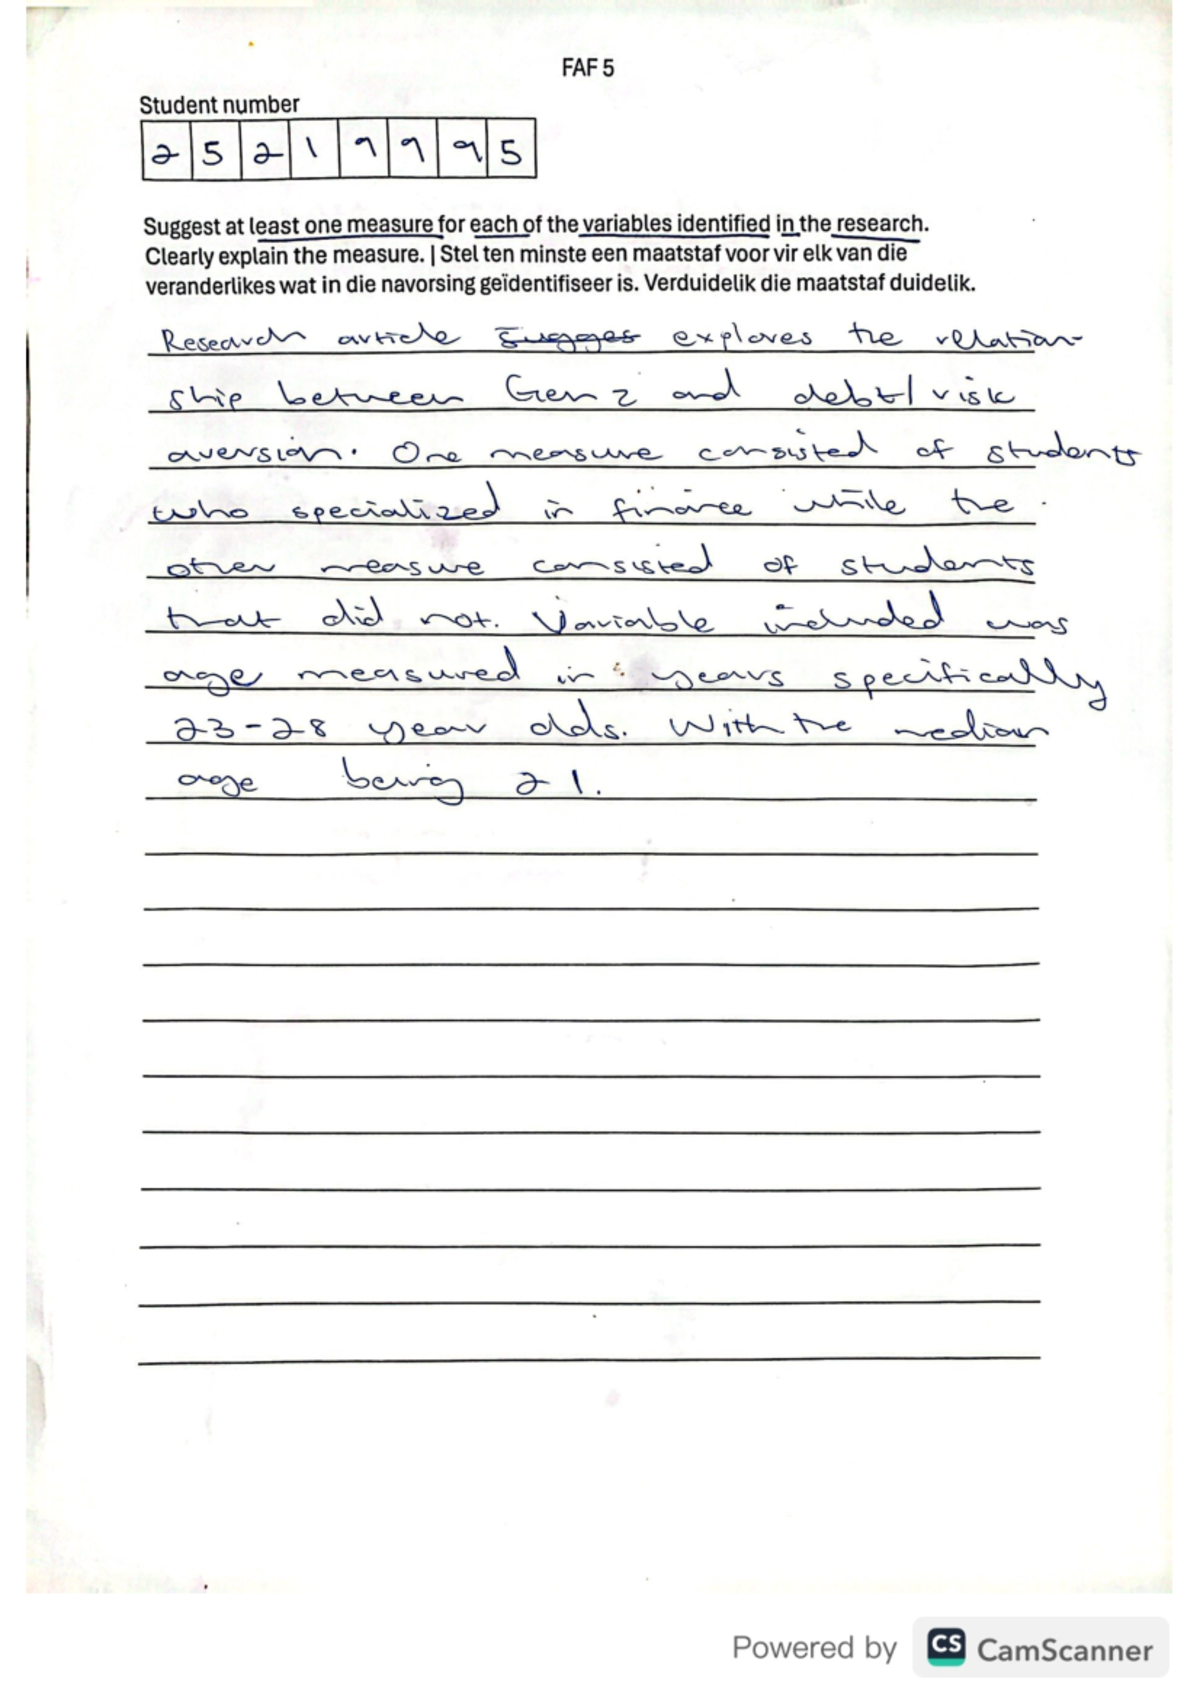 FAF 5
Student number
2 5 2 1 9 9 9 5
Suggest at least one measure for each of the variables identified in the research.
Clearly explain the measure. | Stel ten minste een maatstaf voor vir elk van die
veranderlikes wat in die navorsing geïdentifiseer is. Verduidelik die maatstaf duidelik.
Research article Sugges explores the relation-
ship between Gen z and debt/risk
aversion. One measure consisted of students
who specialized in finance while the
other measure consisted of students
that did not. Variable included was
age measured in years specifically
23-28 year olds. With the median
age being 21.
Powered by CS CamScanner